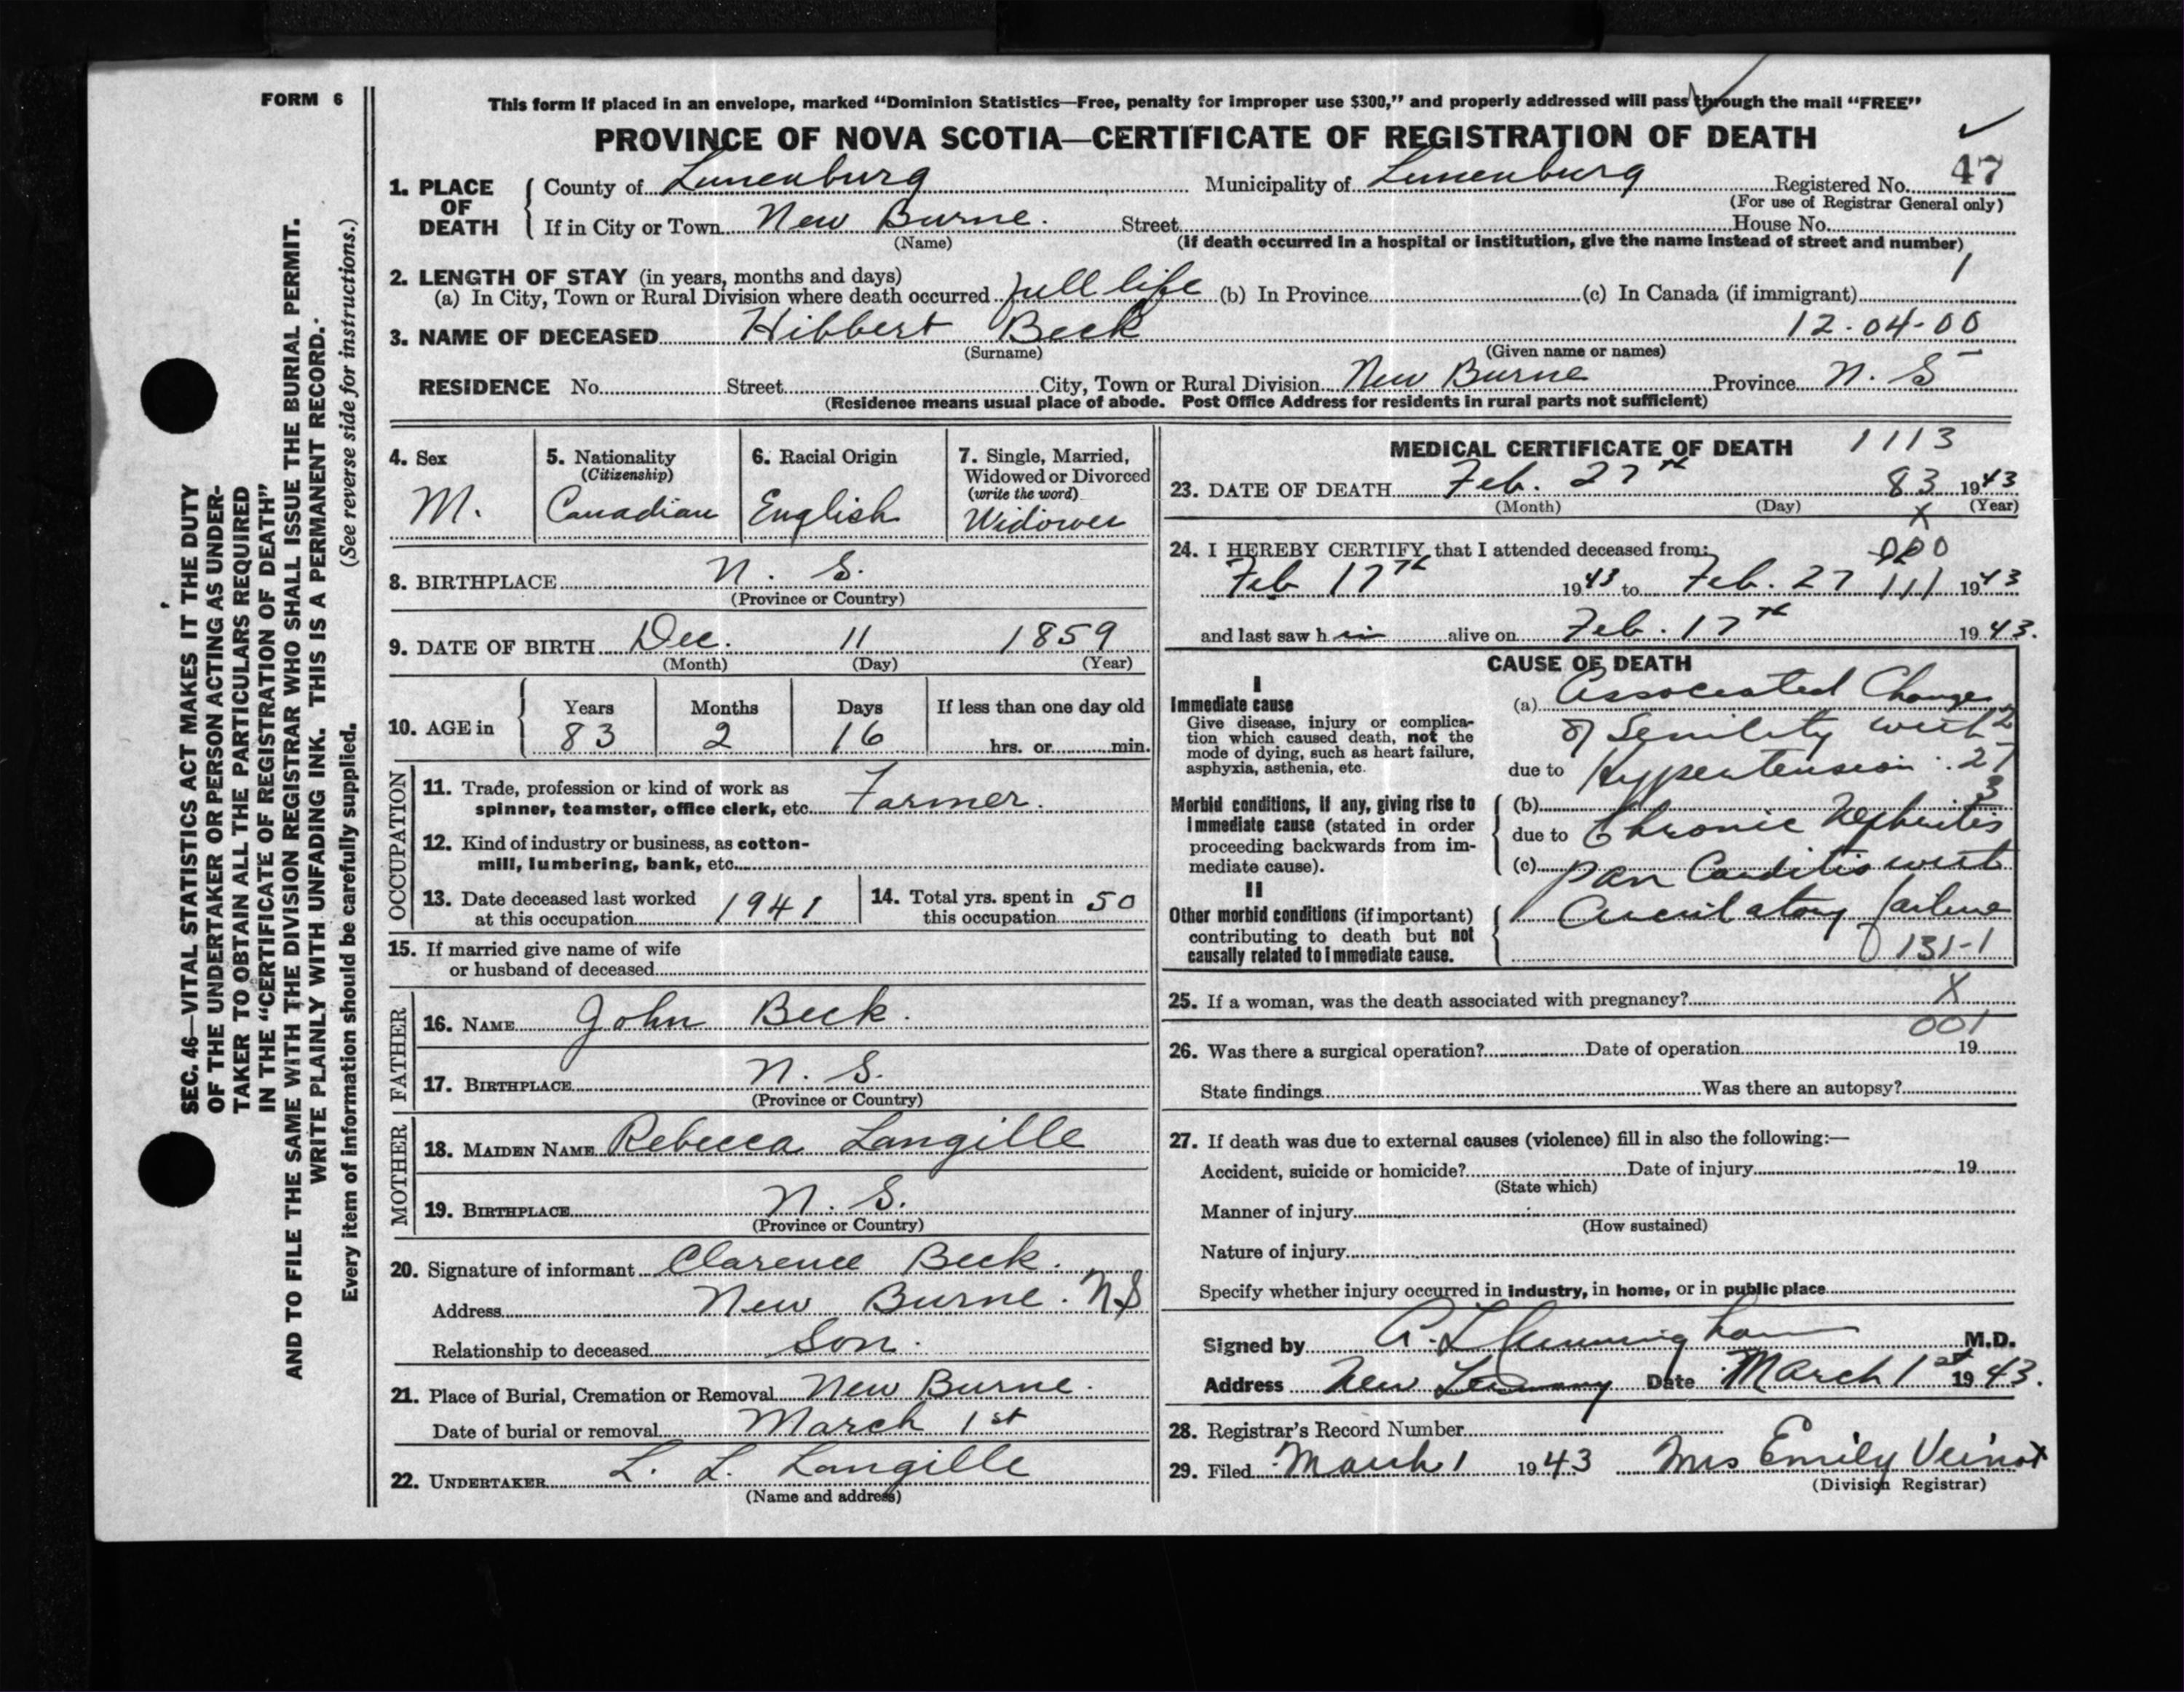 FORM 6
This form if placed in an envelope, marked “Dominion Statistics—Free, penalty for improper use $300,” and properly addressed will pass through the mail “FREE”
PROVINCE OF NOVA SCOTIA—CERTIFICATE OF REGISTRATION OF DEATH
1. PLACE OF DEATH County of Lunenburg Municipality of Lunenburg Registered No. 47
(For use of Registrar General only)
If in City or Town New Burne. Street House No.
(Name) (If death occurred in a hospital or institution, give the name instead of street and number)
2. LENGTH OF STAY (in years, months and days) 1
(a) In City, Town or Rural Division where death occurred full life (b) In Province (c) In Canada (if immigrant)
3. NAME OF DECEASED Hibbert Beck 12-04-00
(Surname) (Given name or names)
RESIDENCE No. Street City, Town or Rural Division New Burne Province N. S
(Residence means usual place of abode. Post Office Address for residents in rural parts not sufficient)
4. Sex
M.
5. Nationality
(Citizenship)
Canadian
6. Racial Origin
English
7. Single, Married,
Widowed or Divorced
(write the word)
Widower
8. BIRTHPLACE N. S.
(Province or Country)
9. DATE OF BIRTH Dec. 11 1859
(Month) (Day) (Year)
10. AGE in Years Months Days If less than one day old
83 2 16 hrs. or min.
OCCUPATION
11. Trade, profession or kind of work as
spinner, teamster, office clerk, etc. Farmer.
12. Kind of industry or business, as cotton-
mill, lumbering, bank, etc.
13. Date deceased last worked
at this occupation 1941
14. Total yrs. spent in
this occupation 50
15. If married give name of wife
or husband of deceased
FATHER
16. NAME John Beck.
17. BIRTHPLACE N. S.
(Province or Country)
MOTHER
18. MAIDEN NAME Rebecca Langille
19. BIRTHPLACE N. S.
(Province or Country)
20. Signature of informant Clarence Beck.
Address New Burne. NS
Relationship to deceased Son.
21. Place of Burial, Cremation or Removal New Burne.
Date of burial or removal March 1st
22. UNDERTAKER L. L. Langille
(Name and address)
MEDICAL CERTIFICATE OF DEATH 1113
23. DATE OF DEATH Feb. 27th 83 1943
(Month) (Day) (Year)
X
24. I HEREBY CERTIFY that I attended deceased from:
Feb 17th 1943 to Feb. 27 111 1943
and last saw him alive on Feb. 17th 1943.
CAUSE OF DEATH
I
Immediate cause
Give disease, injury or complica-
tion which caused death, not the
mode of dying, such as heart failure,
asphyxia, asthenia, etc.
(a) Associated Changes
of Senility with
due to Hypertension.
Morbid conditions, if any, giving rise to
immediate cause (stated in order
proceeding backwards from im-
mediate cause).
(b)
due to Chronic Nephritis
(c) Pan Carditis with
II
Other morbid conditions (if important)
contributing to death but not
causally related to immediate cause.
Circulatory failure
131-1
25. If a woman, was the death associated with pregnancy? X
001
26. Was there a surgical operation? Date of operation 19
State findings Was there an autopsy?
27. If death was due to external causes (violence) fill in also the following:—
Accident, suicide or homicide? Date of injury 19
(State which)
Manner of injury
(How sustained)
Nature of injury
Specify whether injury occurred in industry, in home, or in public place
Signed by M.D.
Address New Germany Date March 1st 1943.
28. Registrar's Record Number
29. Filed March 1 1943 Mrs Emily Veinot
(Division Registrar)
SEC. 46—VITAL STATISTICS ACT MAKES IT THE DUTY
OF THE UNDERTAKER OR PERSON ACTING AS UNDER-
TAKER TO OBTAIN ALL THE PARTICULARS REQUIRED
IN THE “CERTIFICATE OF REGISTRATION OF DEATH”
AND TO FILE THE SAME WITH THE DIVISION REGISTRAR WHO SHALL ISSUE THE BURIAL PERMIT.
WRITE PLAINLY WITH UNFADING INK. THIS IS A PERMANENT RECORD.
Every item of information should be carefully supplied. (See reverse side for instructions.)